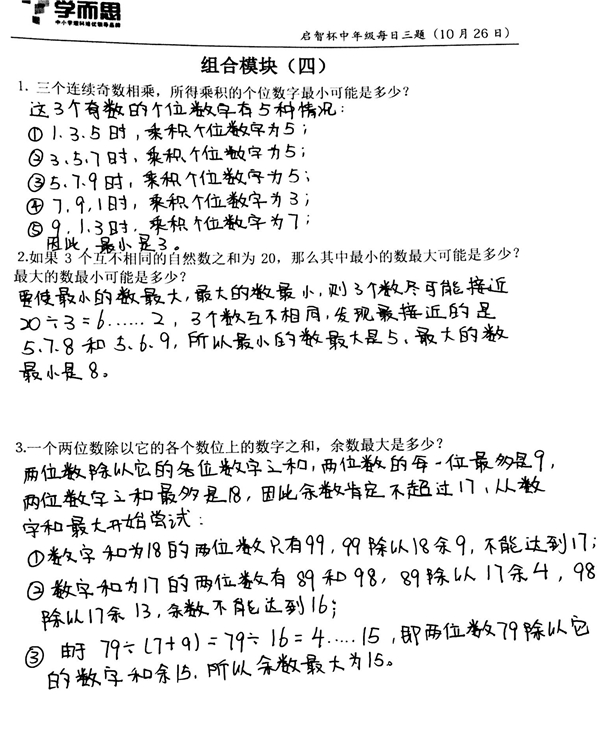 学而思
中小学理科培优领导品牌
启智杯中年级每日三题（10月26日）
组合模块（四）
1. 三个连续奇数相乘，所得乘积的个位数字最小可能是多少？
这3个奇数的个位数字有5种情况：
①1.3.5时，乘积个位数字为5；
②3.5.7时，乘积个位数字为5；
③5.7.9时，乘积个位数字为5；
④7.9.1时，乘积个位数字为3；
⑤9.1.3时，乘积个位数字为7；
因此，最小是3。
2.如果 3 个互不相同的自然数之和为 20，那么其中最小的数最大可能是多少？
最大的数最小可能是多少？
要使最小的数最大，最大的数最小，则3个数尽可能接近
20÷3=6……2，3个数互不相同，发现最接近的是
5.7.8和5.6.9，所以最小的数最大是5，最大的数
最小是8。
3.一个两位数除以它的各个数位上的数字之和，余数最大是多少？
两位数除以它的各位数字之和，两位数的每一位最多是9，
两位数字之和最多是18，因此余数肯定不超过17，从数
字和最大开始尝试：
①数字和为18的两位数只有99，99除以18余9，不能达到17；
②数字和为17的两位数有89和98，89除以17余4，98
除以17余13，余数不能达到16；
③由于79÷(7+9)=79÷16=4……15，即两位数79除以它
的数字和余15，所以余数最大为15。